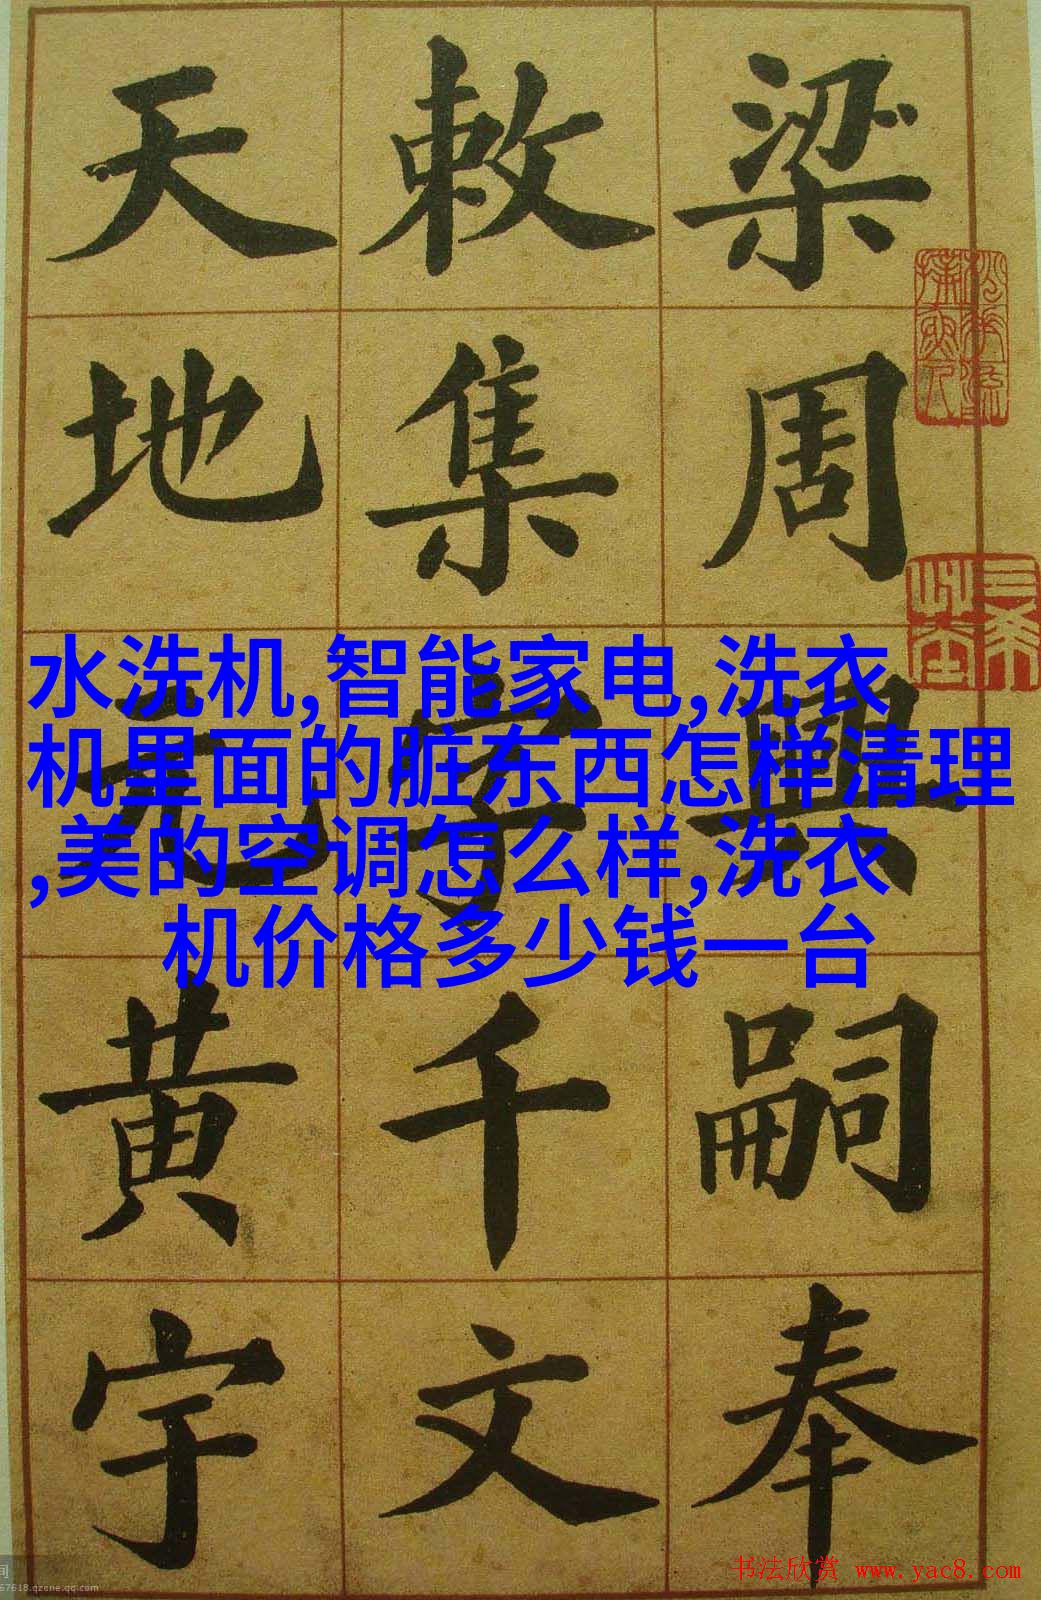 梁周興嗣奉
敕集字千文
天地元黄宇
水洗机,智能家电,洗衣
机里面的脏东西怎样清理
,美的空调怎么样,洗衣
机价格多少钱一台
书法欣赏 www.yac8.com
67618.qzone.qq.com